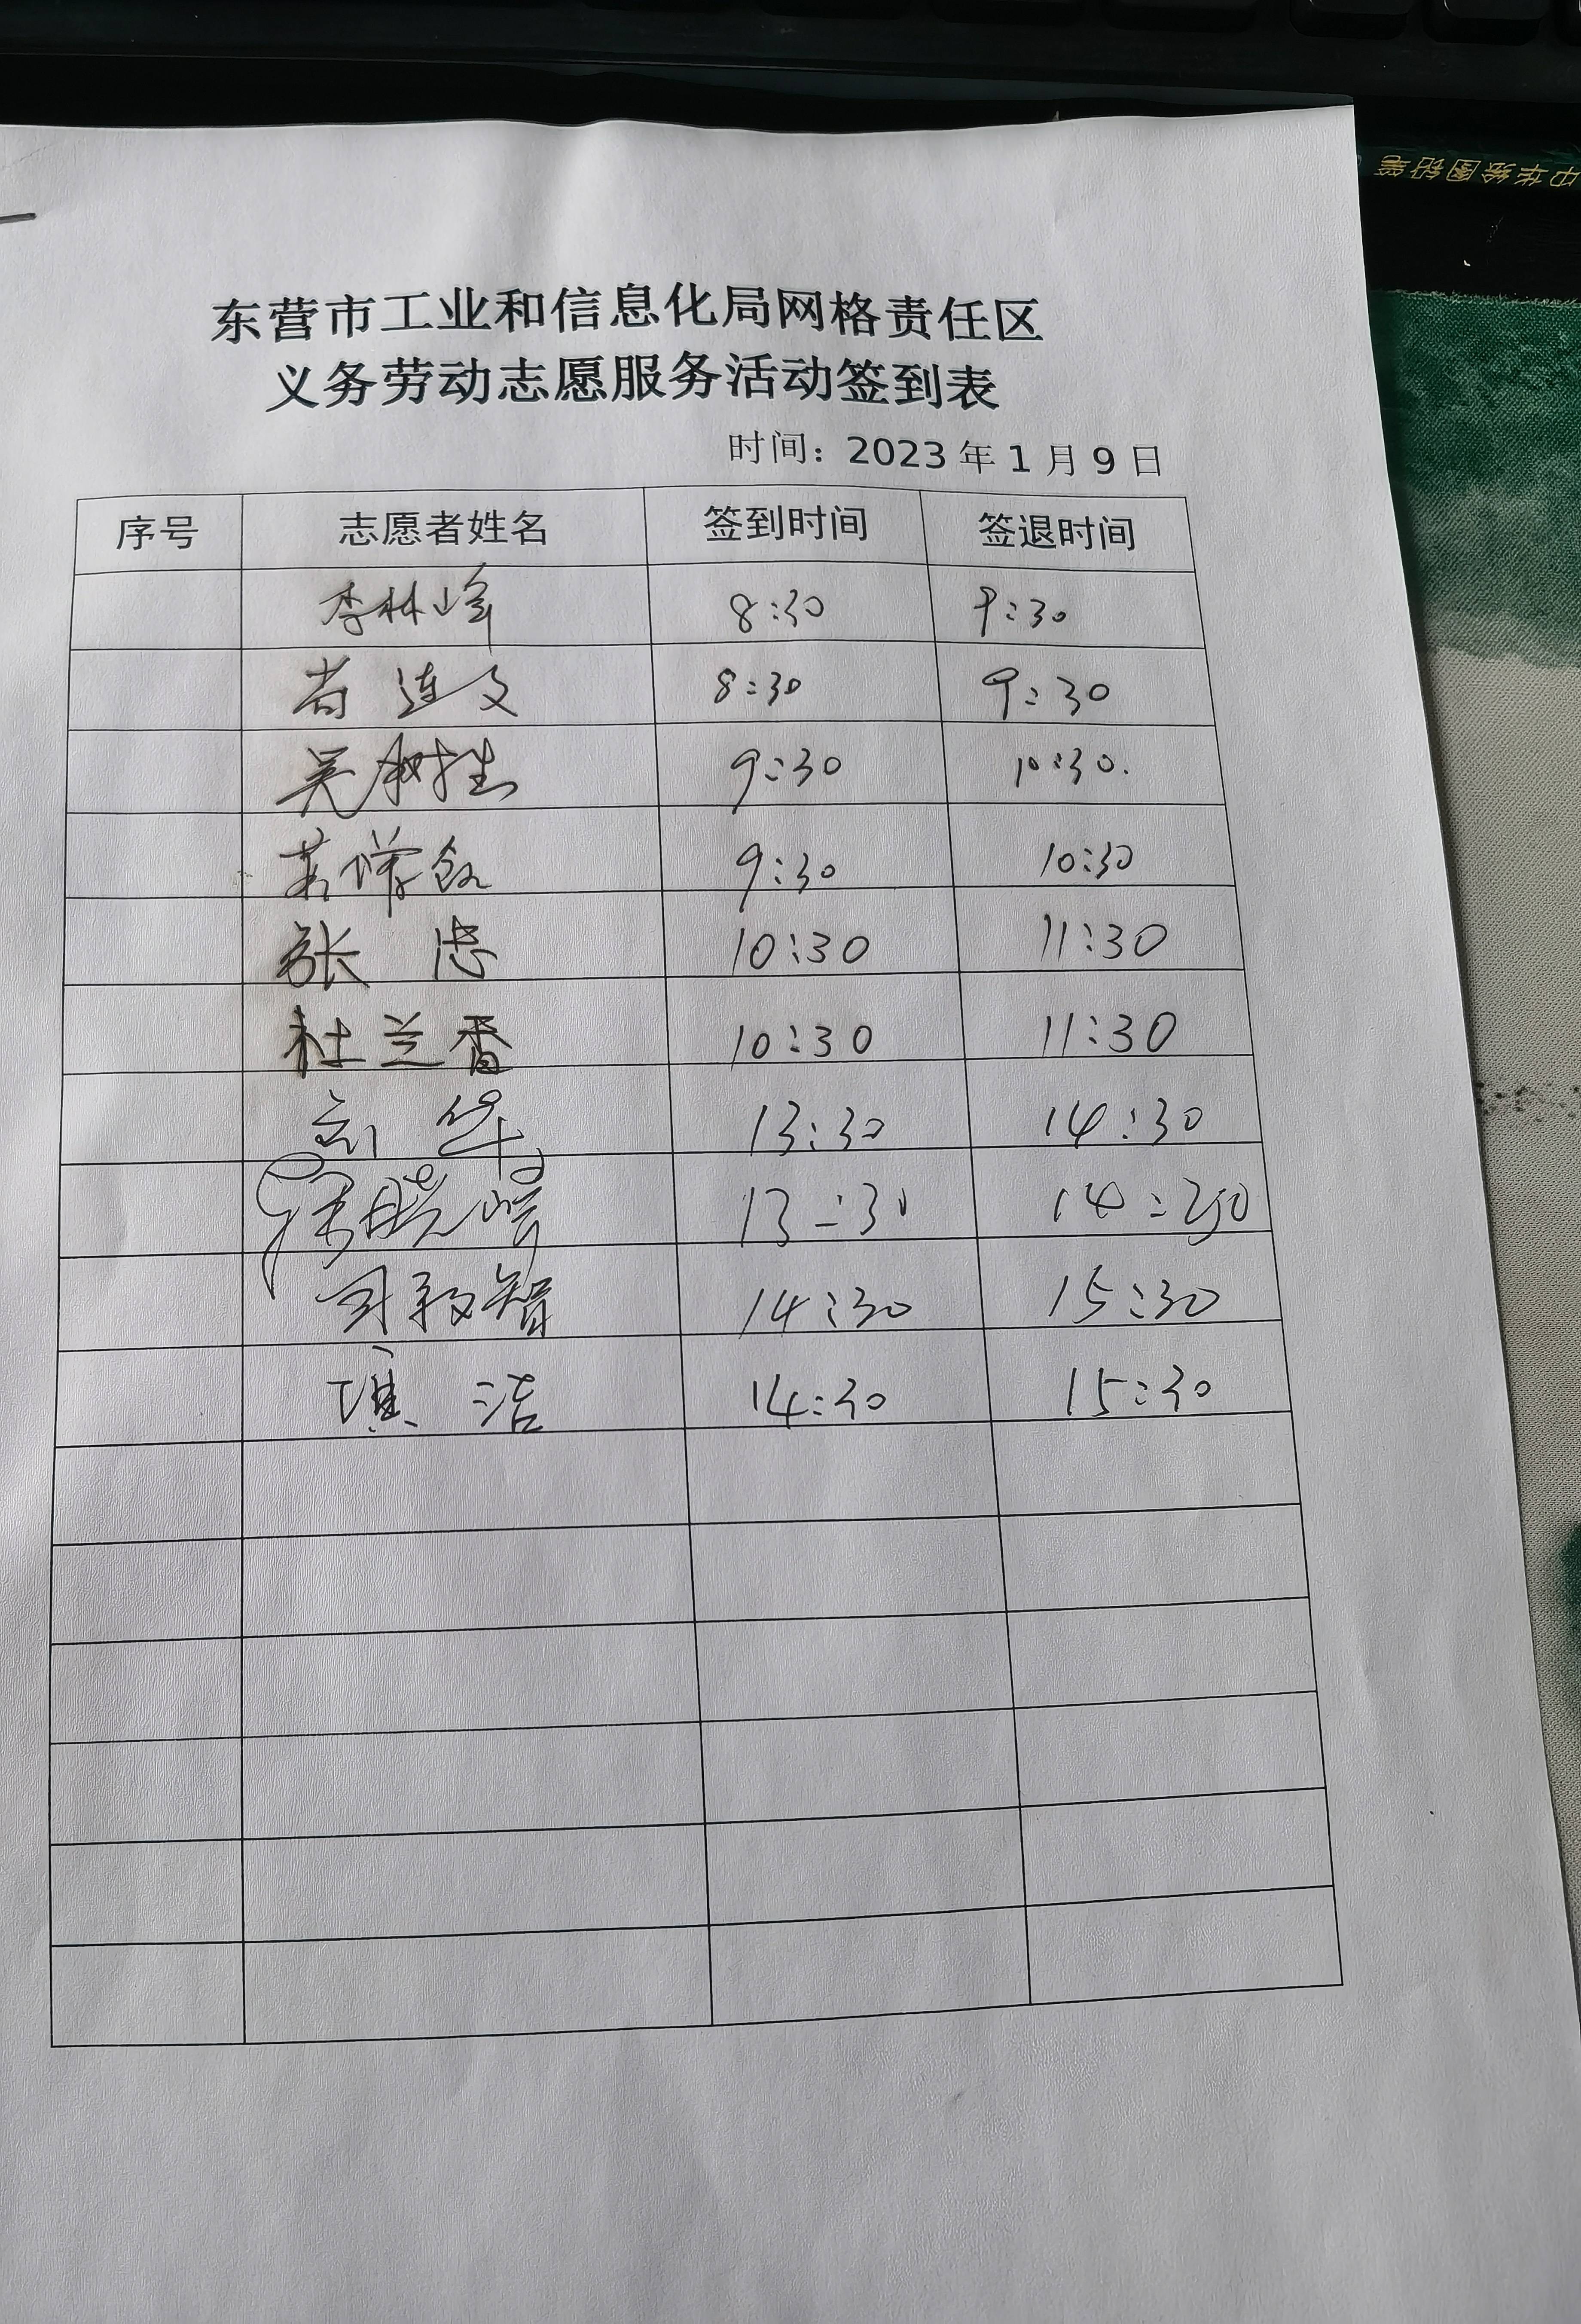 中华绘图铅笔
东营市工业和信息化局网格责任区
义务劳动志愿服务活动签到表
时间：2023 年 1 月 9 日
序号 志愿者姓名 签到时间 签退时间
李林峰 8:30 9:30
连文 8:30 9:30
吴树生 9:30 10:30.
9:30 10:30
张忠 10:30 11:30
杜兰香 10:30 11:30
刘华 13:30 14:30
13:30 14:30
智 14:30 15:30
洁 14:30 15:30